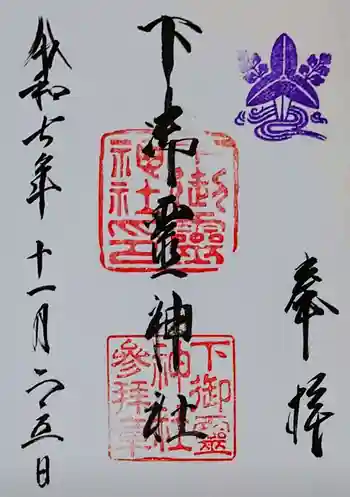 奉拝
下御靈神社
下御霊神社印
下御霊神社参拝章
令和七年十一月二五日